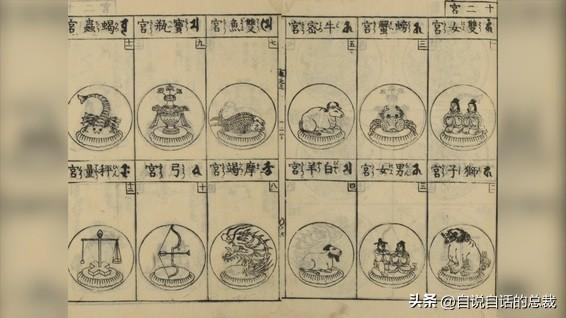 十二宮
雙女宮
螃蟹宮
三
牛密宮
雙魚宮
七
寶瓶宮
九
蝎蟲宮
十一
獅子宮
二
男女宮
白羊宮
摩竭宮
八
弓宮
十
秤量宮
十二
头条 @自说自话的总裁